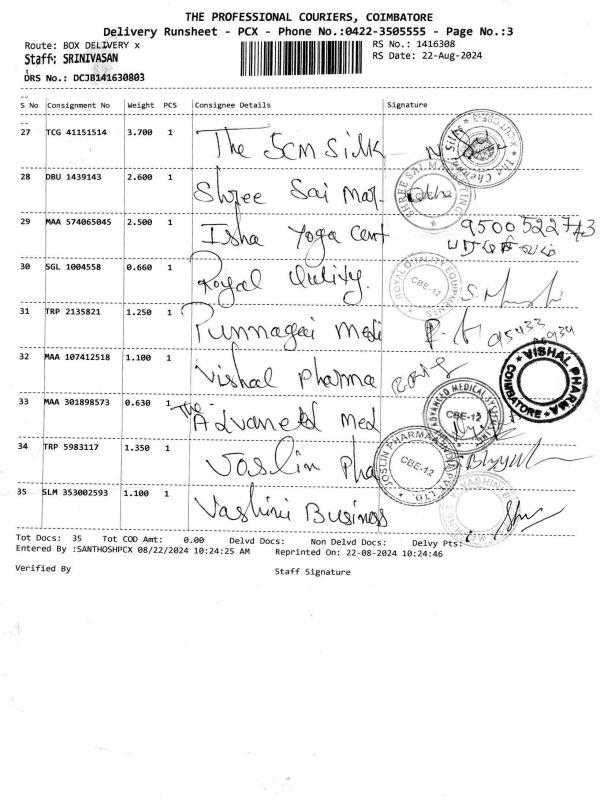 THE PROFESSIONAL COURIERS, COIMBATORE
Delivery Runsheet - PCX - Phone No.:0422-3505555 - Page No.:3
Route: BOX DELIVERY x
RS No.: 1416308
Staff: SRINIVASAN
RS Date: 22-Aug-2024
DRS No.: DCJB141630803
S No Consignment No Weight PCS Consignee Details Signature
27 TCG 41151514 3.700 1 The SCM Silk
28 DBU 1439143 2.600 1 Shree Sai Mar
29 MAA 574065045 2.500 1 Isha Yoga Cent 9500522743
30 SGL 1004558 0.660 1 Royal
ROYAL QUALITY EQUIPMENTS CBE-12
31 TRP 2135821 1.250 1 Punnagai Medi
32 MAA 107412518 1.100 1 Vishal Pharma
VISHAL PHARMA COIMBATORE
33 MAA 301898573 0.630 1 The Advanced Med
ADVANCED MEDICAL CBE-12
34 TRP 5983117 1.350 1 Joslin Pha
JOSLIN PHARMA INDIA PVT. LTD. CBE-12
35 SLM 353002593 1.100 1 Vashini Business
Tot Docs: 35 Tot COD Amt: 0.00 Delvd Docs: Non Delvd Docs: Delvy Pts:
Entered By :SANTHOSHPCX 08/22/2024 10:24:25 AM Reprinted On: 22-08-2024 10:24:46
Verified By Staff Signature